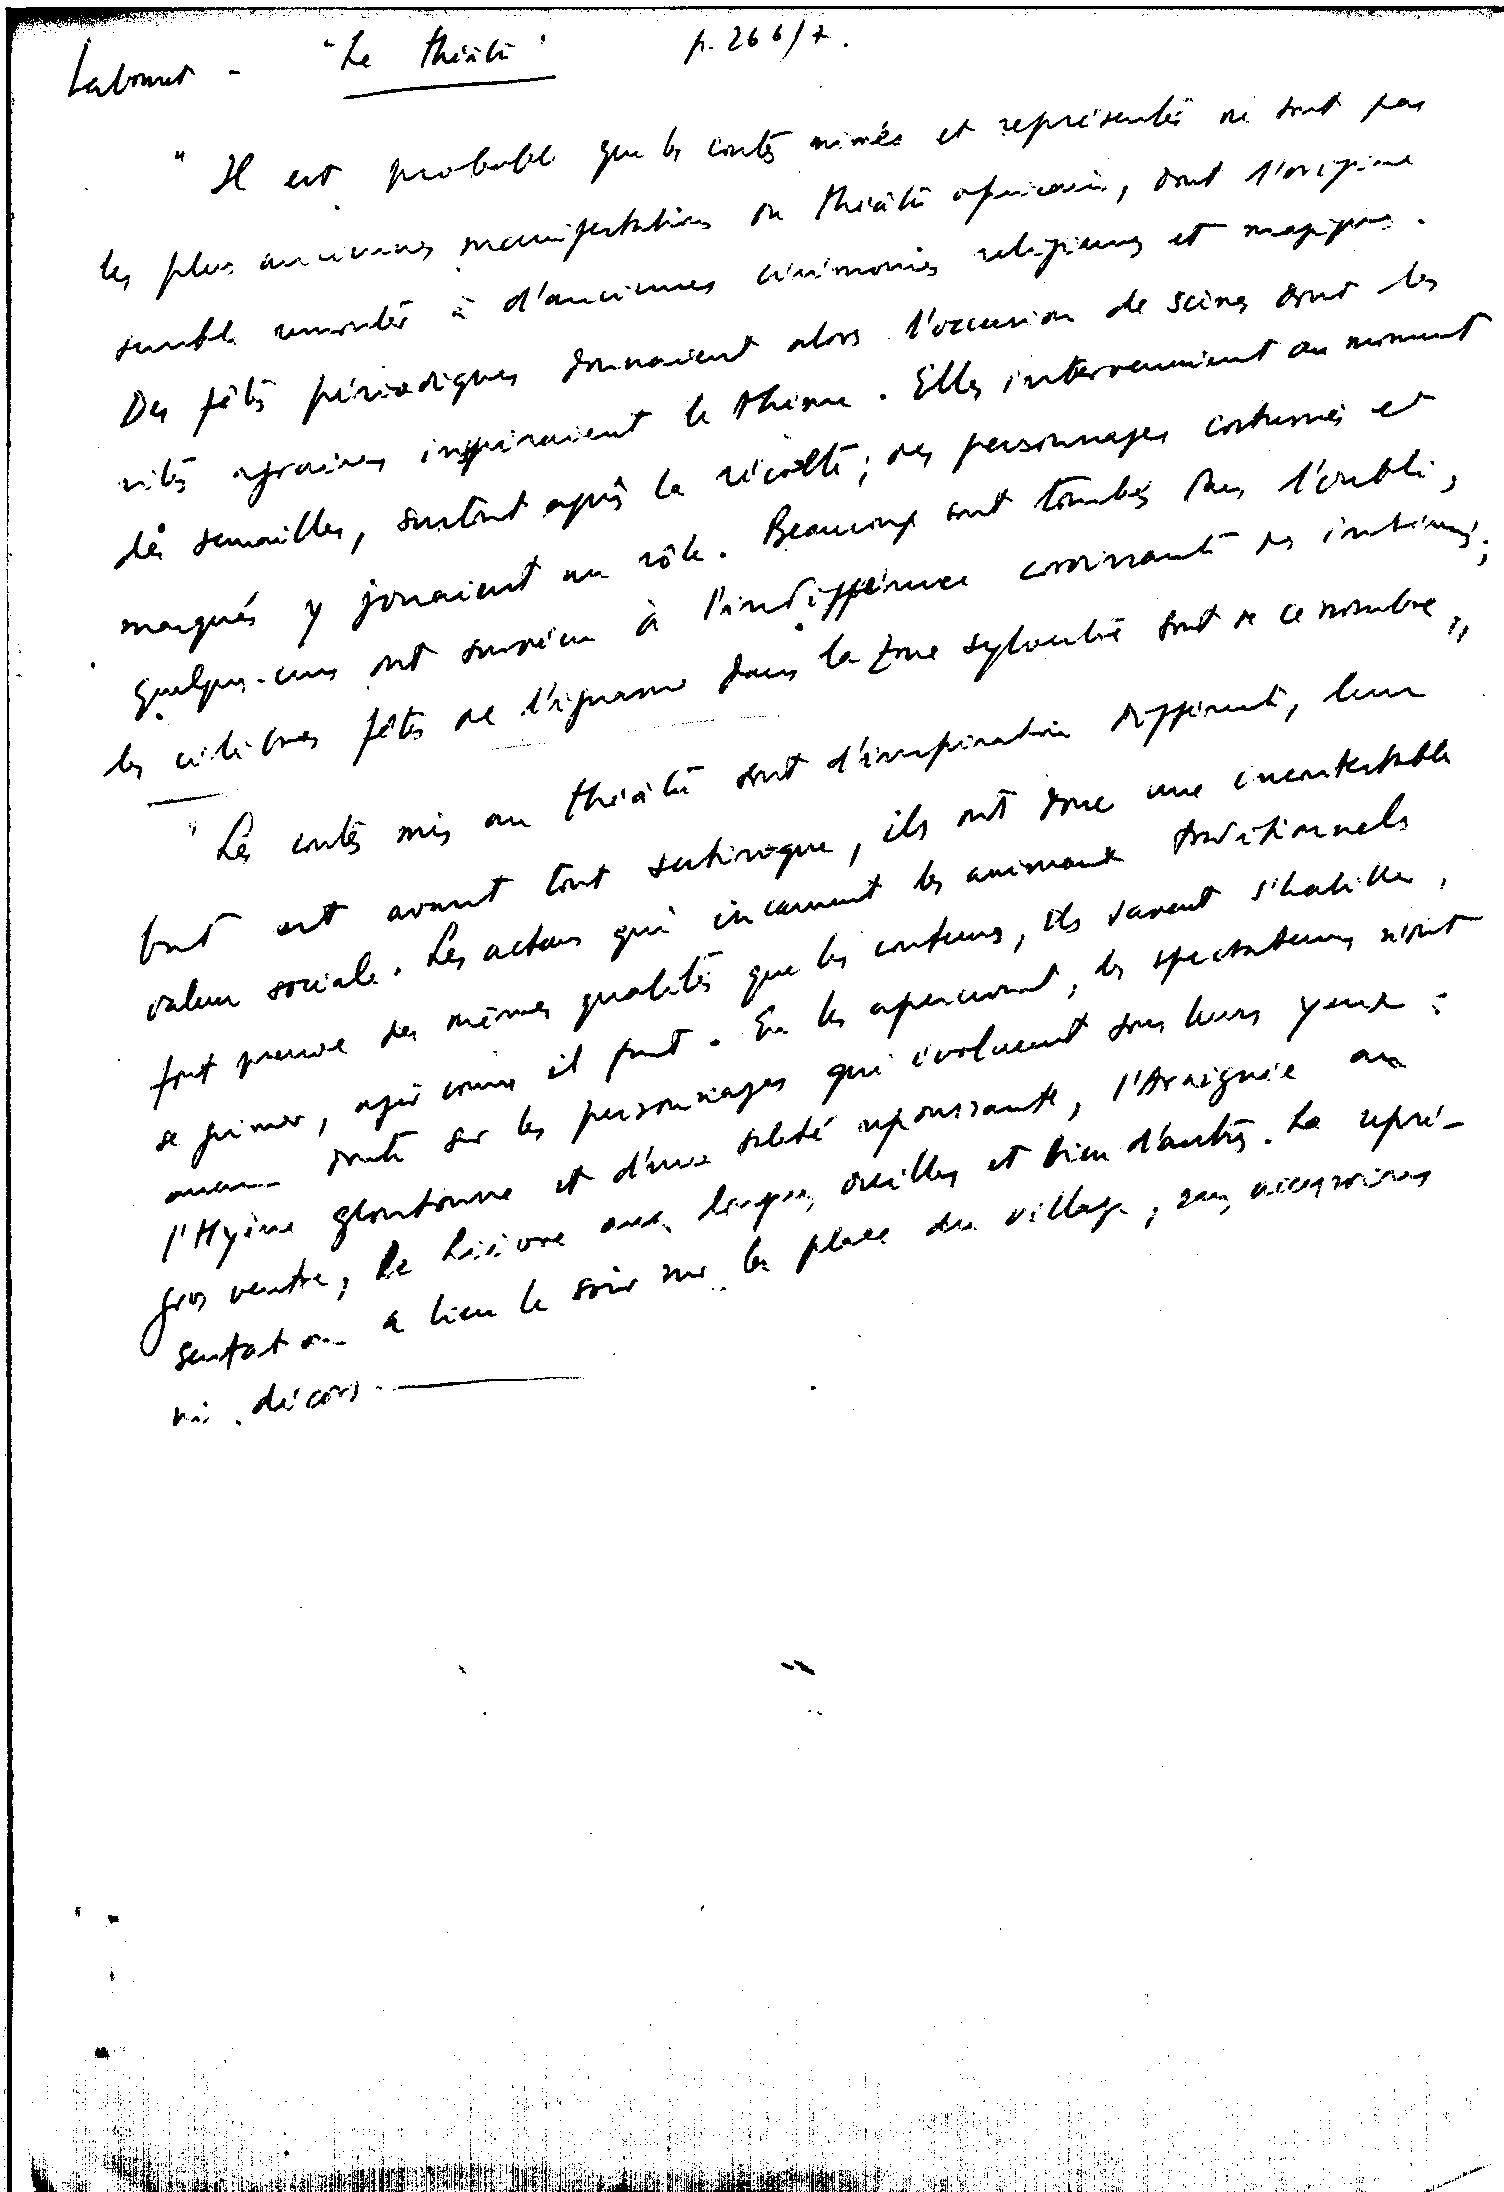 Labouret - "Le théâtre" p. 266/7.
" Il est probable que les contes mimés et représentés ne sont pas
les plus anciennes manifestations du théâtre africain, dont l'origine
semble remonter à d'anciennes cérémonies religieuses et magiques.
Des fêtes périodiques donnaient alors l'occasion de scènes dont les
rites agraires inspiraient le thème. Elles intervenaient au moment
des semailles, surtout après la récolte ; des personnages costumés et
masqués y jouaient un rôle. Beaucoup sont tombés dans l'oubli,
quelques-uns ont survécu à l'indifférence croissante des indigènes ;
les célèbres fêtes de l'igname dans la zone sylvestre sont de ce nombre "
" Les contes mis au théâtre sont d'inspiration différente, leur
but est avant tout satirique, ils ont donc une incontestable
valeur sociale. Les acteurs qui incarnent les animaux traditionnels
font preuve des mêmes qualités que les conteurs, ils savent s'habiller,
se grimer, agir comme il faut. En les apercevant, les spectateurs n'ont
aucun doute sur les personnages qui évoluent sous leurs yeux :
l'Hyène gloutonne et d'une saleté repoussante, l'Araignée au
gros ventre, le Lièvre aux longues oreilles et bien d'autres. La repré-
sentation a lieu le soir sur la place du village, sans accessoires
ni décors.